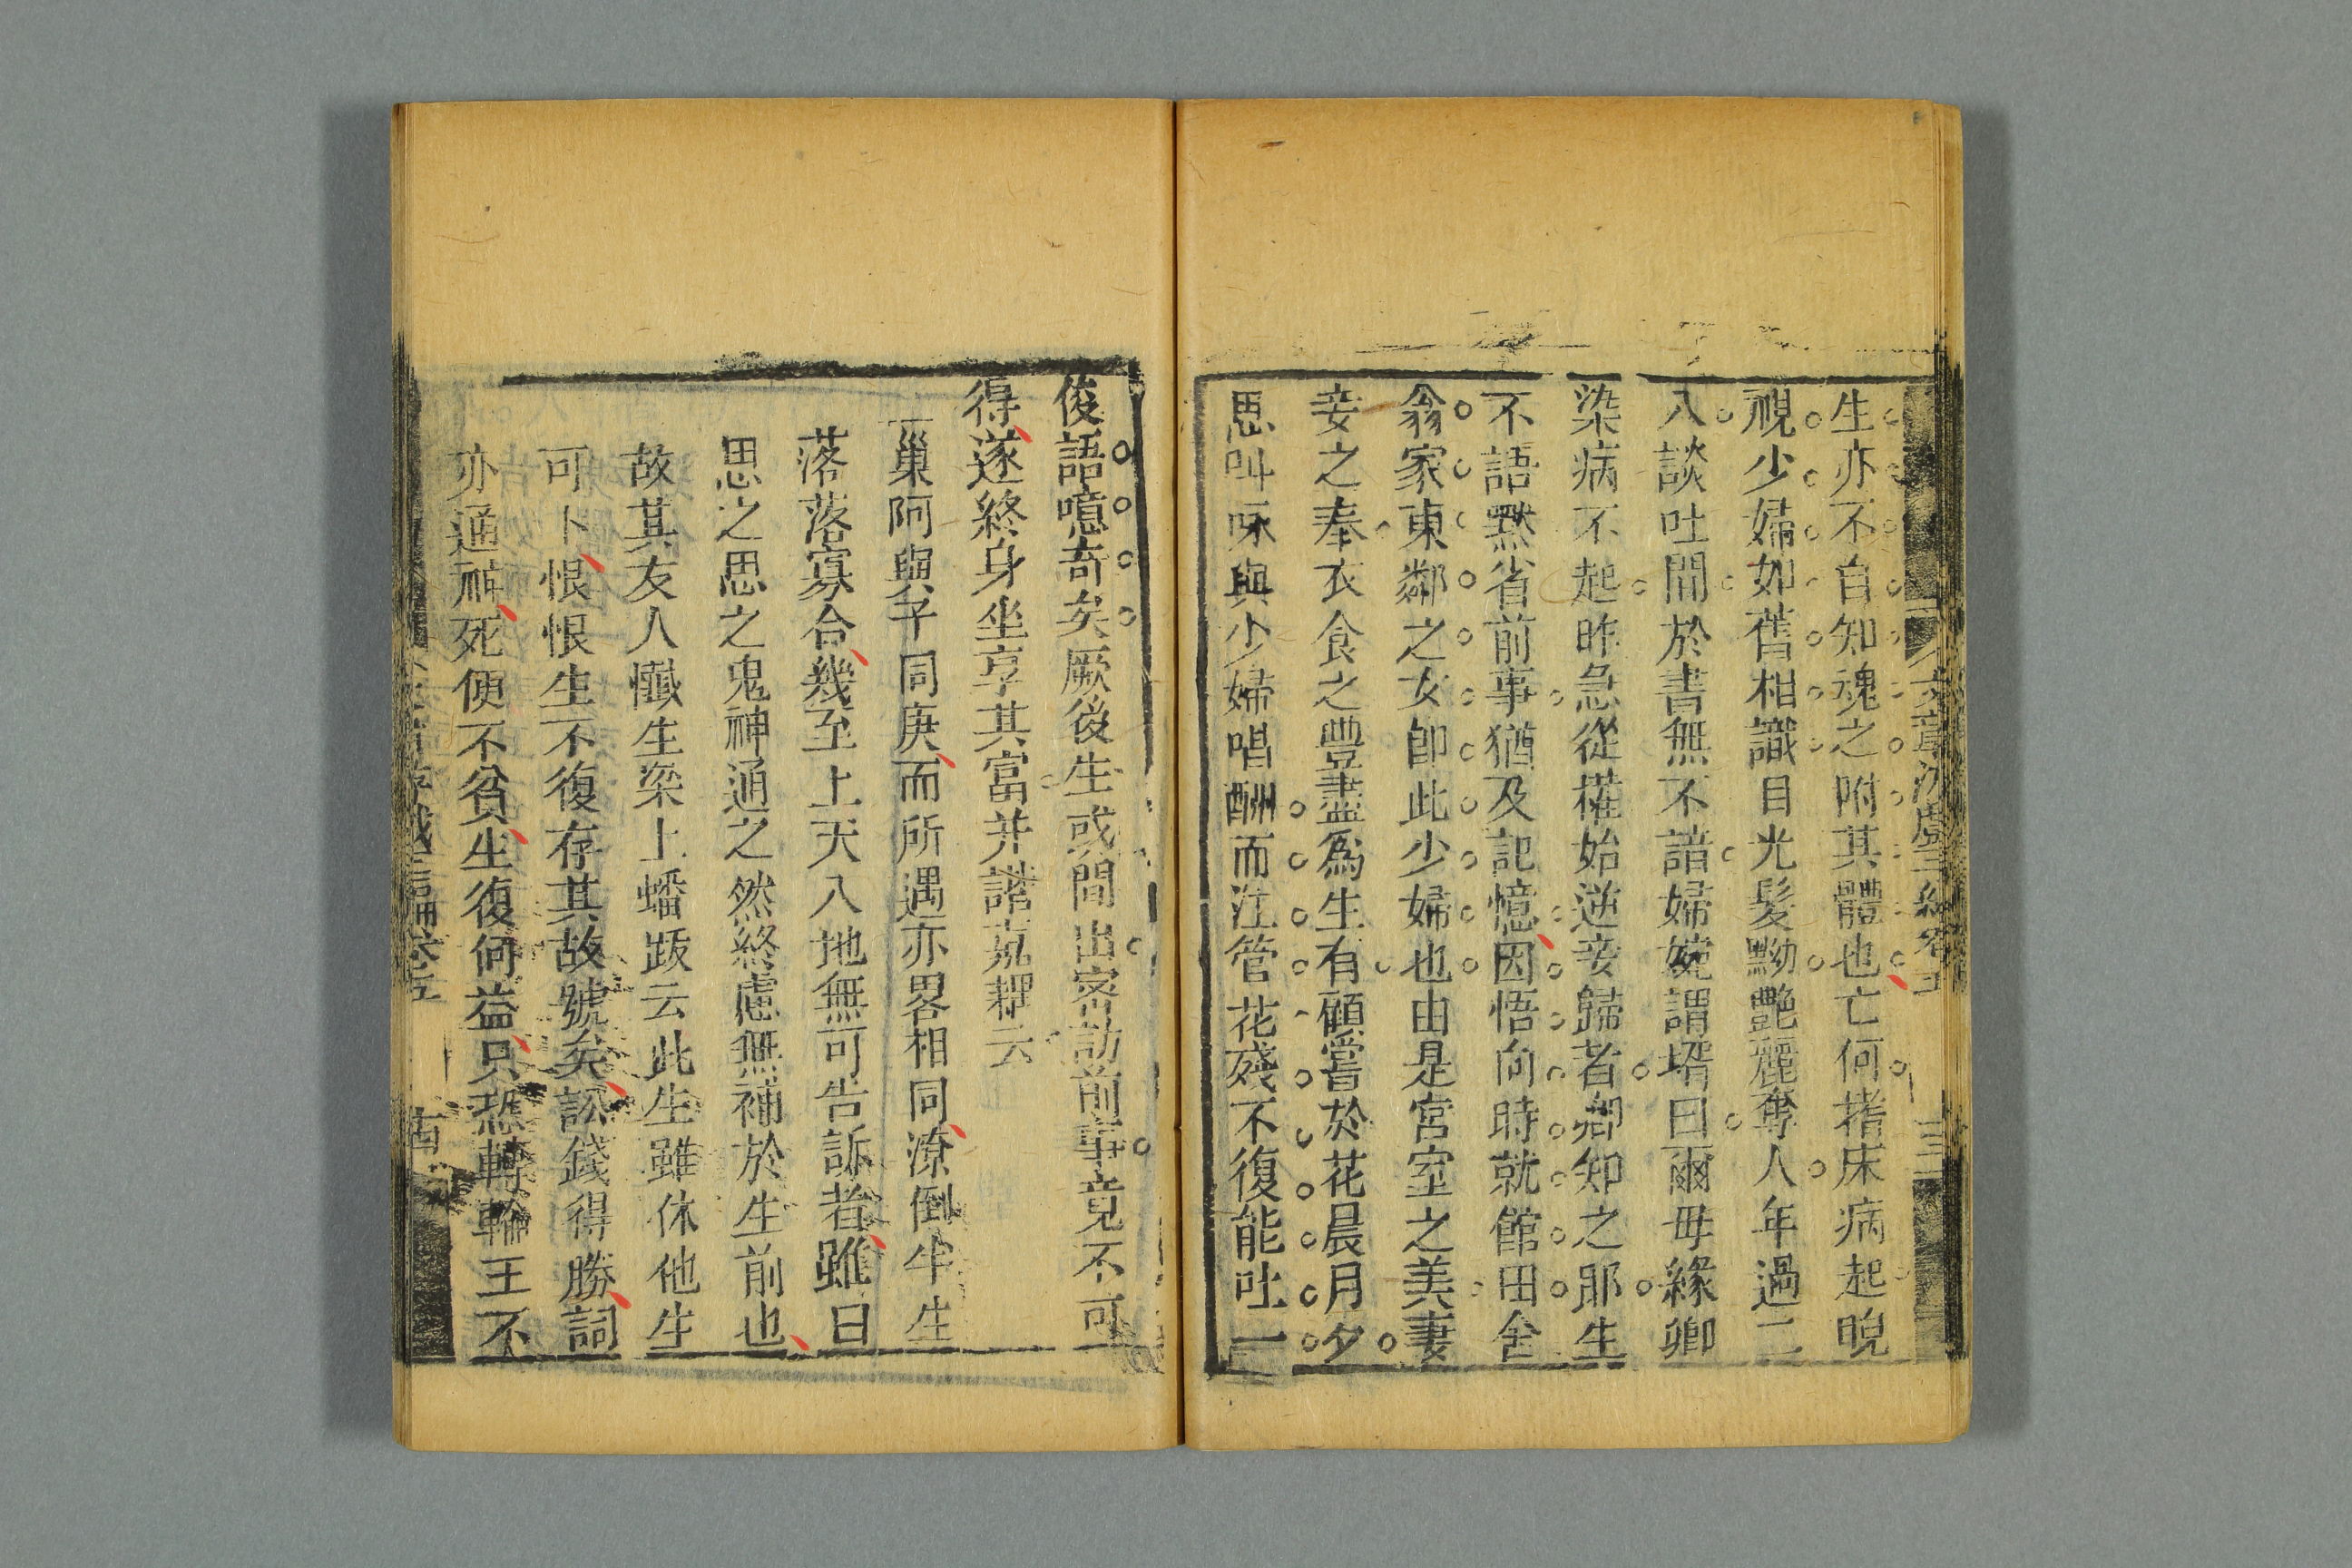 生亦不自知魂之附其體也亡何揩床病起睨
視少婦如舊相識目光髮黝艷麗奪人年過二
八談吐間於書無不諳婦婉謂壻曰爾毋緣卿
染病不起昨急從權始逆妾歸者卿知之耶生
不語默省前事猶及記憶因悟向時就館田舍
翁家東鄰之女卽此少婦也由是宮室之美妻
妾之奉衣食之豐盡爲生有顧嘗於花晨月夕
思叫咏與少婦唱酬而注管花殘不復能吐一
俊語噫奇矣厥後生或間出密訪前事竟不可
得遂終身坐享其富并諧嘉耦云
巢阿與予同庚而所遇亦畧相同潦倒半生
落落寡合幾至上天入地無可告訴者雖曰
思之思之鬼神通之然終慮無補於生前也
故其友人懺生梁上蟠跋云此生雖休他生
可卜恨恨生不復存其故號矣訟錢得勝詞
亦通神死便不貧生復何益只愁轉輪王不